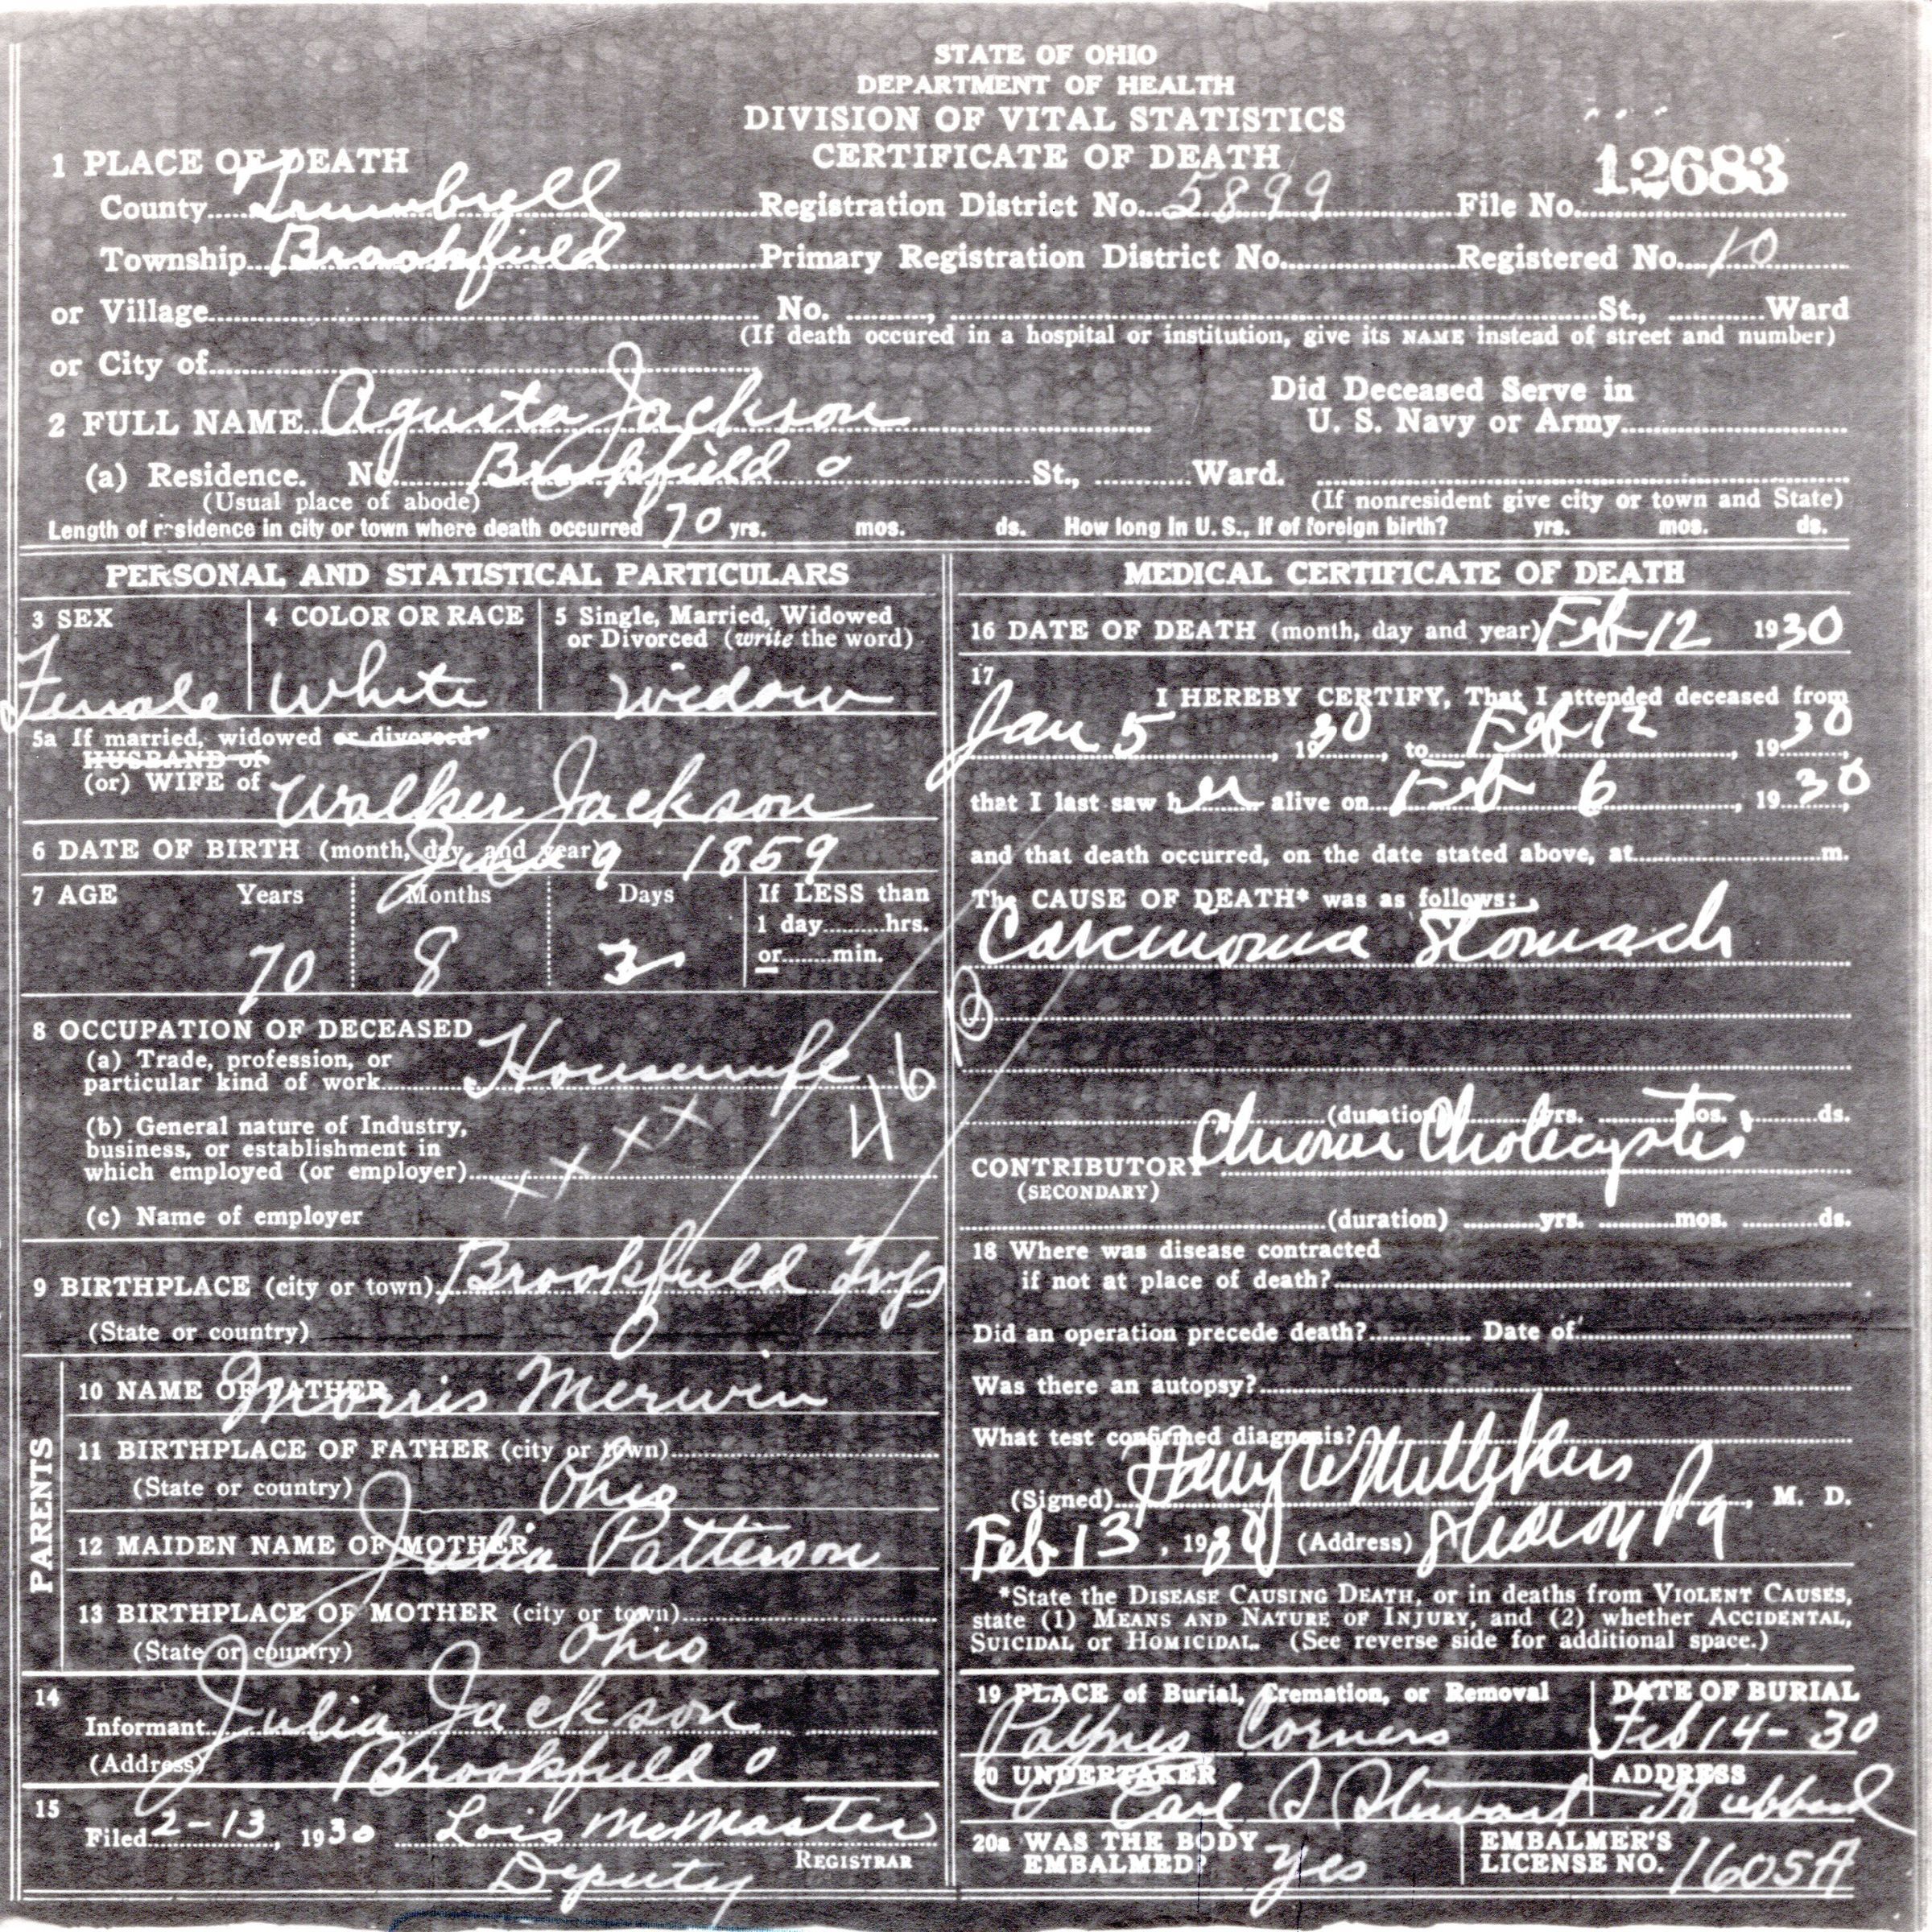 STATE OF OHIO
DEPARTMENT OF HEALTH
DIVISION OF VITAL STATISTICS
CERTIFICATE OF DEATH
12683
1 PLACE OF DEATH
County Trumbull Registration District No. 5899 File No.
Township Brookfield Primary Registration District No. Registered No. 10
or Village No. , St., Ward
(If death occured in a hospital or institution, give its NAME instead of street and number)
or City of
Did Deceased Serve in
U. S. Navy or Army
2 FULL NAME Agusta Jackson
(a) Residence. No. Brookfield O St., Ward.
(Usual place of abode) (If nonresident give city or town and State)
Length of residence in city or town where death occurred 70 yrs. mos. ds. How long in U. S., if of foreign birth? yrs. mos. ds.
PERSONAL AND STATISTICAL PARTICULARS
3 SEX 4 COLOR OR RACE 5 Single, Married, Widowed
or Divorced (write the word)
Female White Widow
5a If married, widowed or divorced
HUSBAND of
(or) WIFE of Walker Jackson
6 DATE OF BIRTH (month, day and year) 9 1859
7 AGE Years Months Days If LESS than
1 day hrs.
70 8 3 or min.
8 OCCUPATION OF DECEASED
(a) Trade, profession, or
particular kind of work Housewife
46 B
(b) General nature of Industry,
business, or establishment in
which employed (or employer) x x x x
(c) Name of employer
9 BIRTHPLACE (city or town) Brookfield Twp
(State or country) O
PARENTS
10 NAME OF FATHER Morris Merwin
11 BIRTHPLACE OF FATHER (city or town)
(State or country) Ohio
12 MAIDEN NAME OF MOTHER Julia Patterson
13 BIRTHPLACE OF MOTHER (city or town)
(State or country) Ohio
14
Informant Julia Jackson
(Address) Brookfield O
15
Filed 2-13, 1930 Lois McMaster
REGISTRAR
Deputy
MEDICAL CERTIFICATE OF DEATH
16 DATE OF DEATH (month, day and year) Feb 12 1930
17
I HEREBY CERTIFY, That I attended deceased from
Jan 5, 1930, to Feb 12, 1930,
that I last saw her alive on Feb 6, 1930,
and that death occurred, on the date stated above, at m.
The CAUSE OF DEATH* was as follows:
Carcinoma Stomach
(duration) yrs. mos. ds.
CONTRIBUTORY Chronic Cholecystis
(SECONDARY)
(duration) yrs. mos. ds.
18 Where was disease contracted
if not at place of death?
Did an operation precede death? Date of
Was there an autopsy?
What test confirmed diagnosis?
(Signed) Harry W Milliken, M. D.
Feb 13, 1930 (Address) Sharon Pa
*State the DISEASE CAUSING DEATH, or in deaths from VIOLENT CAUSES,
state (1) MEANS AND NATURE OF INJURY, and (2) whether ACCIDENTAL,
SUICIDAL or HOMICIDAL. (See reverse side for additional space.)
19 PLACE of Burial, Cremation, or Removal DATE OF BURIAL
Paynes Corners Feb 14-30
20 UNDERTAKER ADDRESS
Earl Stewart Hubbard
20a WAS THE BODY
EMBALMED? yes
EMBALMER'S
LICENSE NO. 1605A